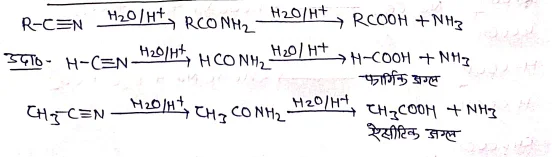 R-C≡N —H2O/H+→ RCONH2 —H2O/H+→ RCOOH + NH3
उदा०- H-C≡N —H2O/H+→ HCONH2 —H2O/H+→ H-COOH + NH3
फार्मिक अम्ल
CH3-C≡N —H2O/H+→ CH3CONH2 —H2O/H+→ CH3COOH + NH3
ऐसीटिक अम्ल